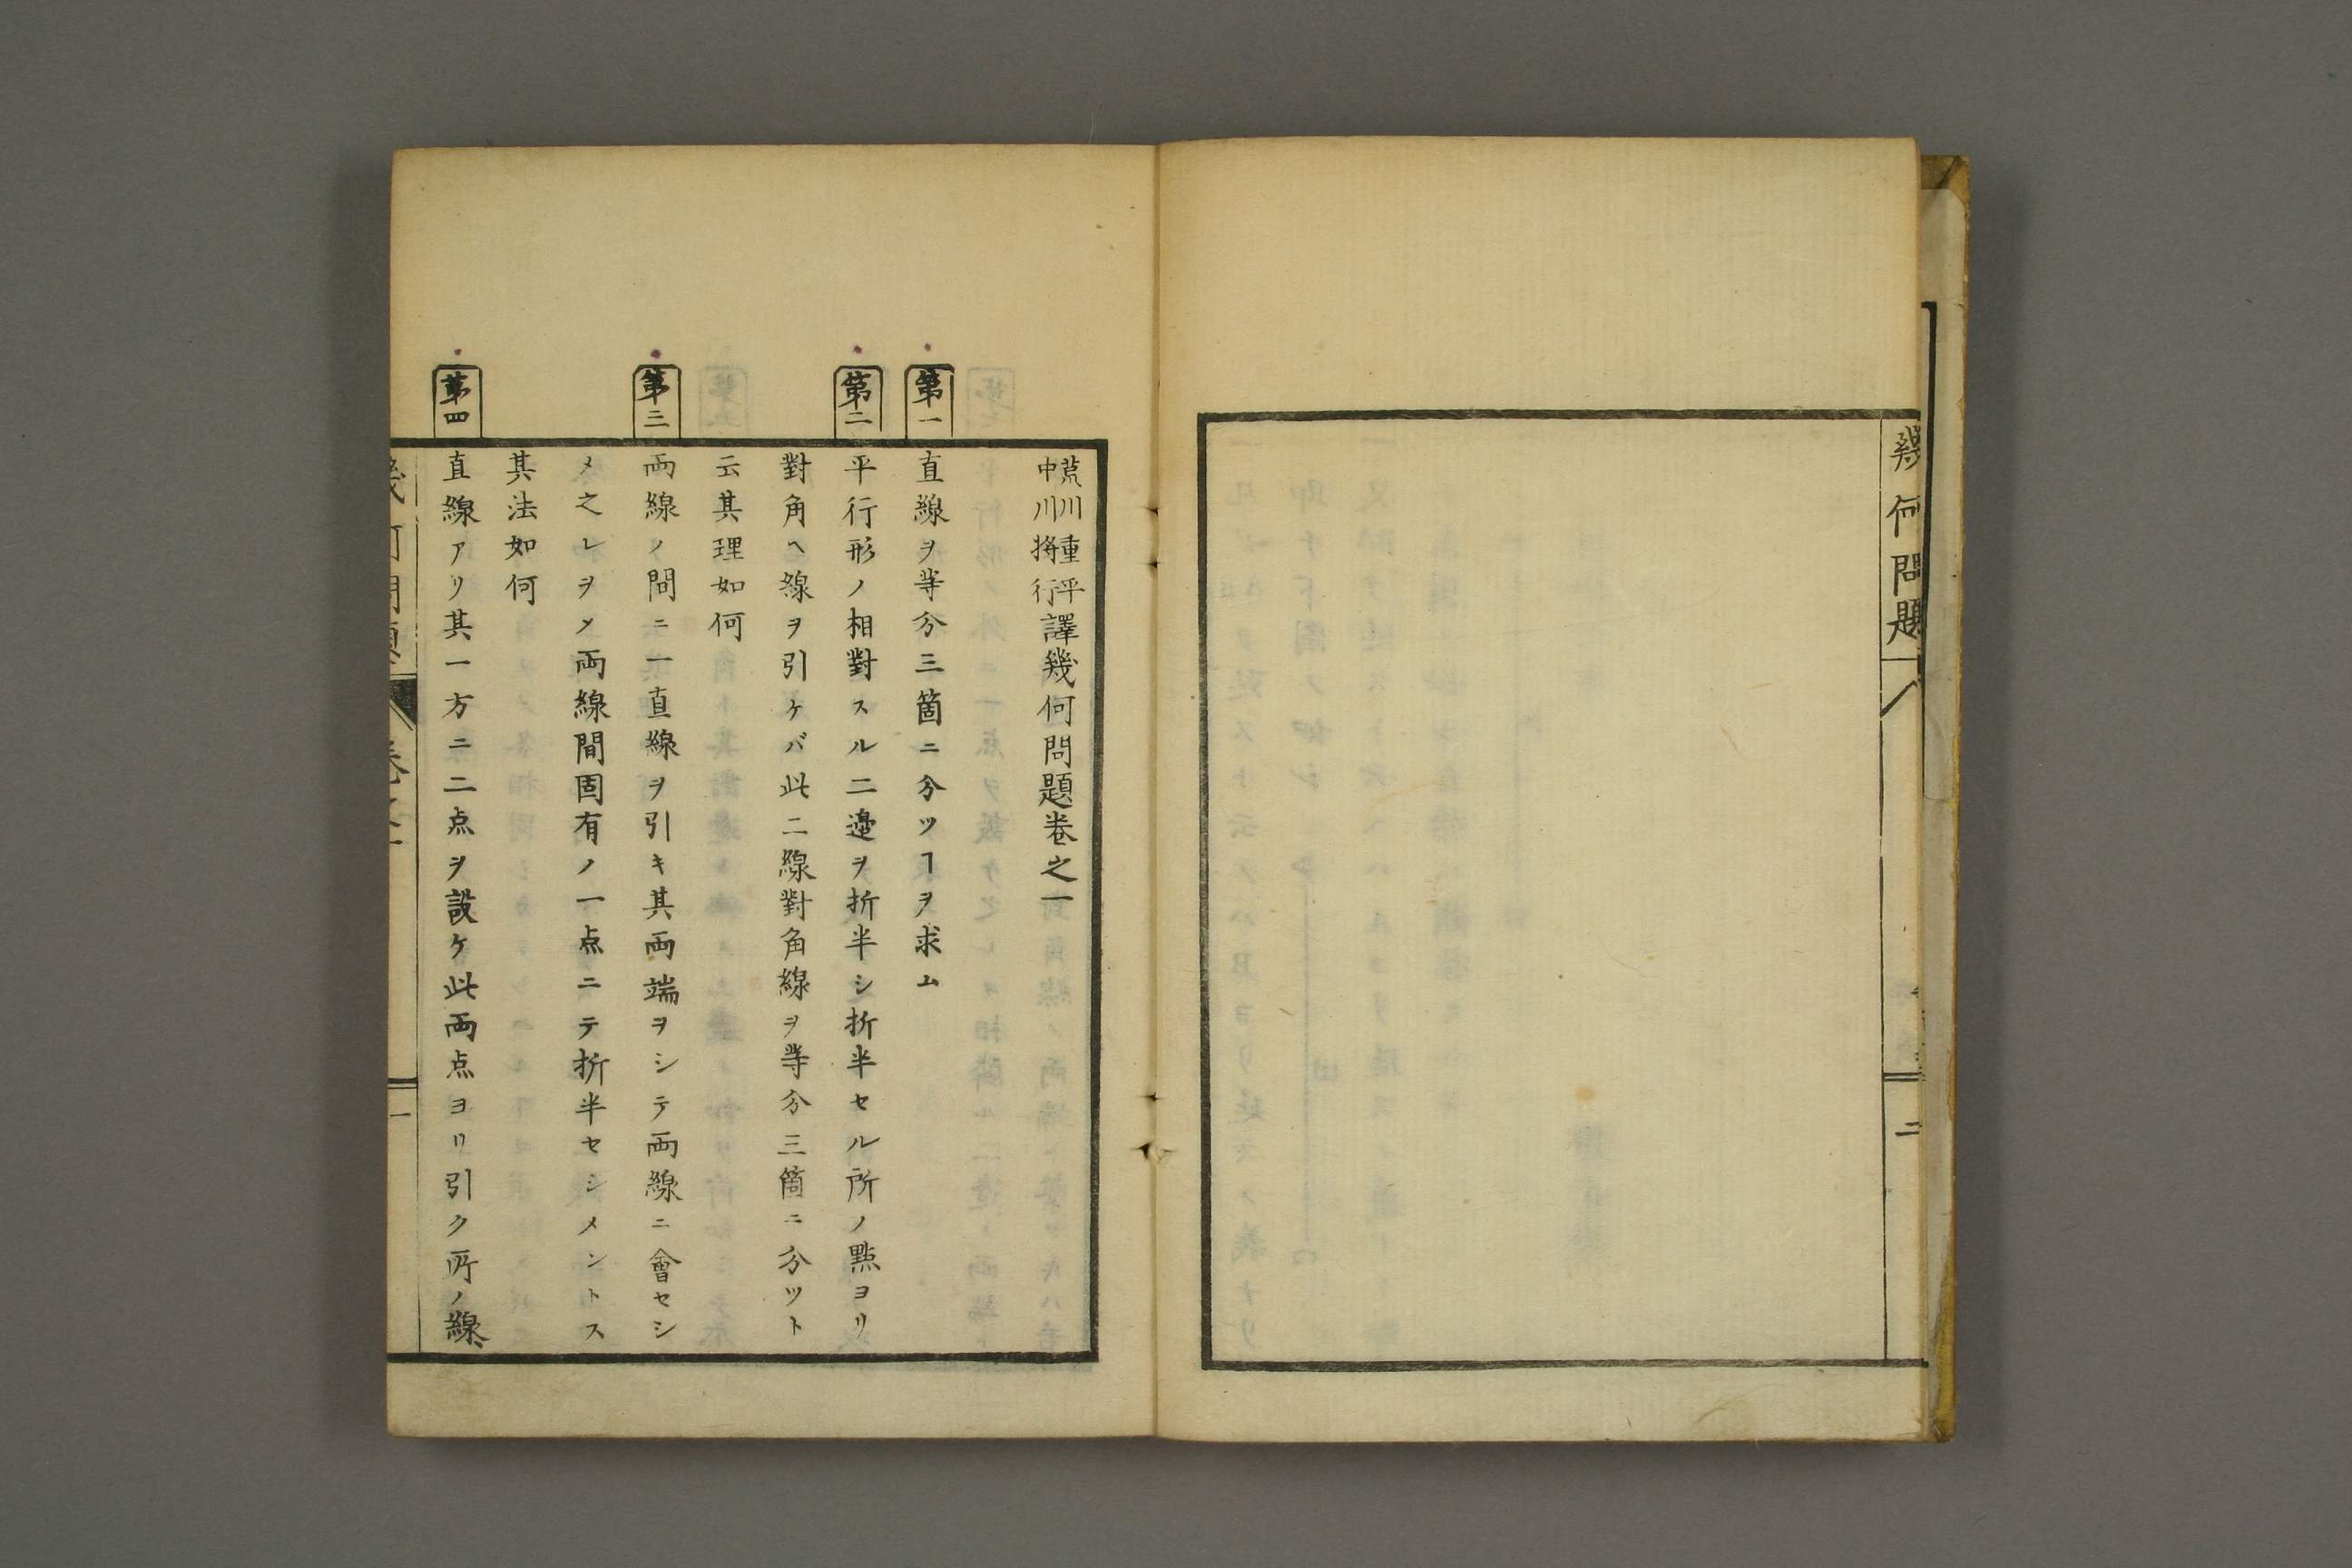 幾何問題
二
荒川重平
中川將行
譯幾何問題卷之一
第一
直線ヲ等分三箇ニ分ツヿヲ求ム
第二
平行形ノ相對スル二邉ヲ折半シ折半セル所ノ點ヨリ
對角ヘ線ヲ引ケバ此二線對角線ヲ等分三箇ニ分ツト
云其理如何
第三
両線ノ間ニ一直線ヲ引キ其両端ヲシテ両線ニ會セシ
メ之レヲメ両線間固有ノ一点ニテ折半セシメントス
其法如何
第四
直線アリ其一方ニ二点ヲ設ケ此両点ヨリ引ク所ノ線
一